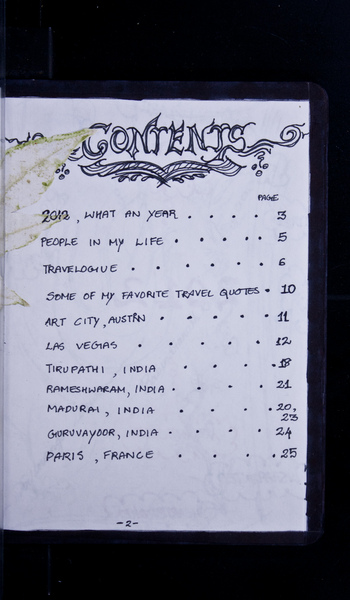 CONTENTS
PAGE
2012, WHAT AN YEAR . . . . 3
PEOPLE IN MY LIFE . . . . . 5
TRAVELOGUE . . . . . . 6
SOME OF MY FAVORITE TRAVEL QUOTES . 10
ART CITY, AUSTIN . . . . . 11
LAS VEGAS . . . . . 12
TIRUPATHI, INDIA . . . . 18
RAMESHWARAM, INDIA . . . . 21
MADURAI, INDIA . . . . 20,
23
GURUVAYOOR, INDIA . . . . 24
PARIS, FRANCE . . . . 25
-2-